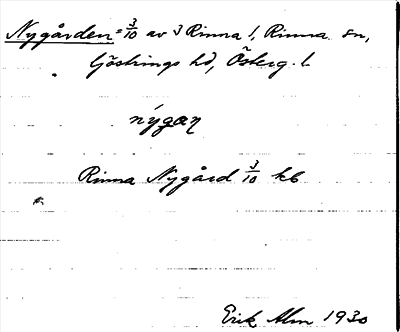 Nygården = 3/10 av 3 Rinna 1, Rinna sn,
Göstrings hd, Österg. l.
nýgan
Rinna Nygård 3/10 kb
Erik Alm 1930